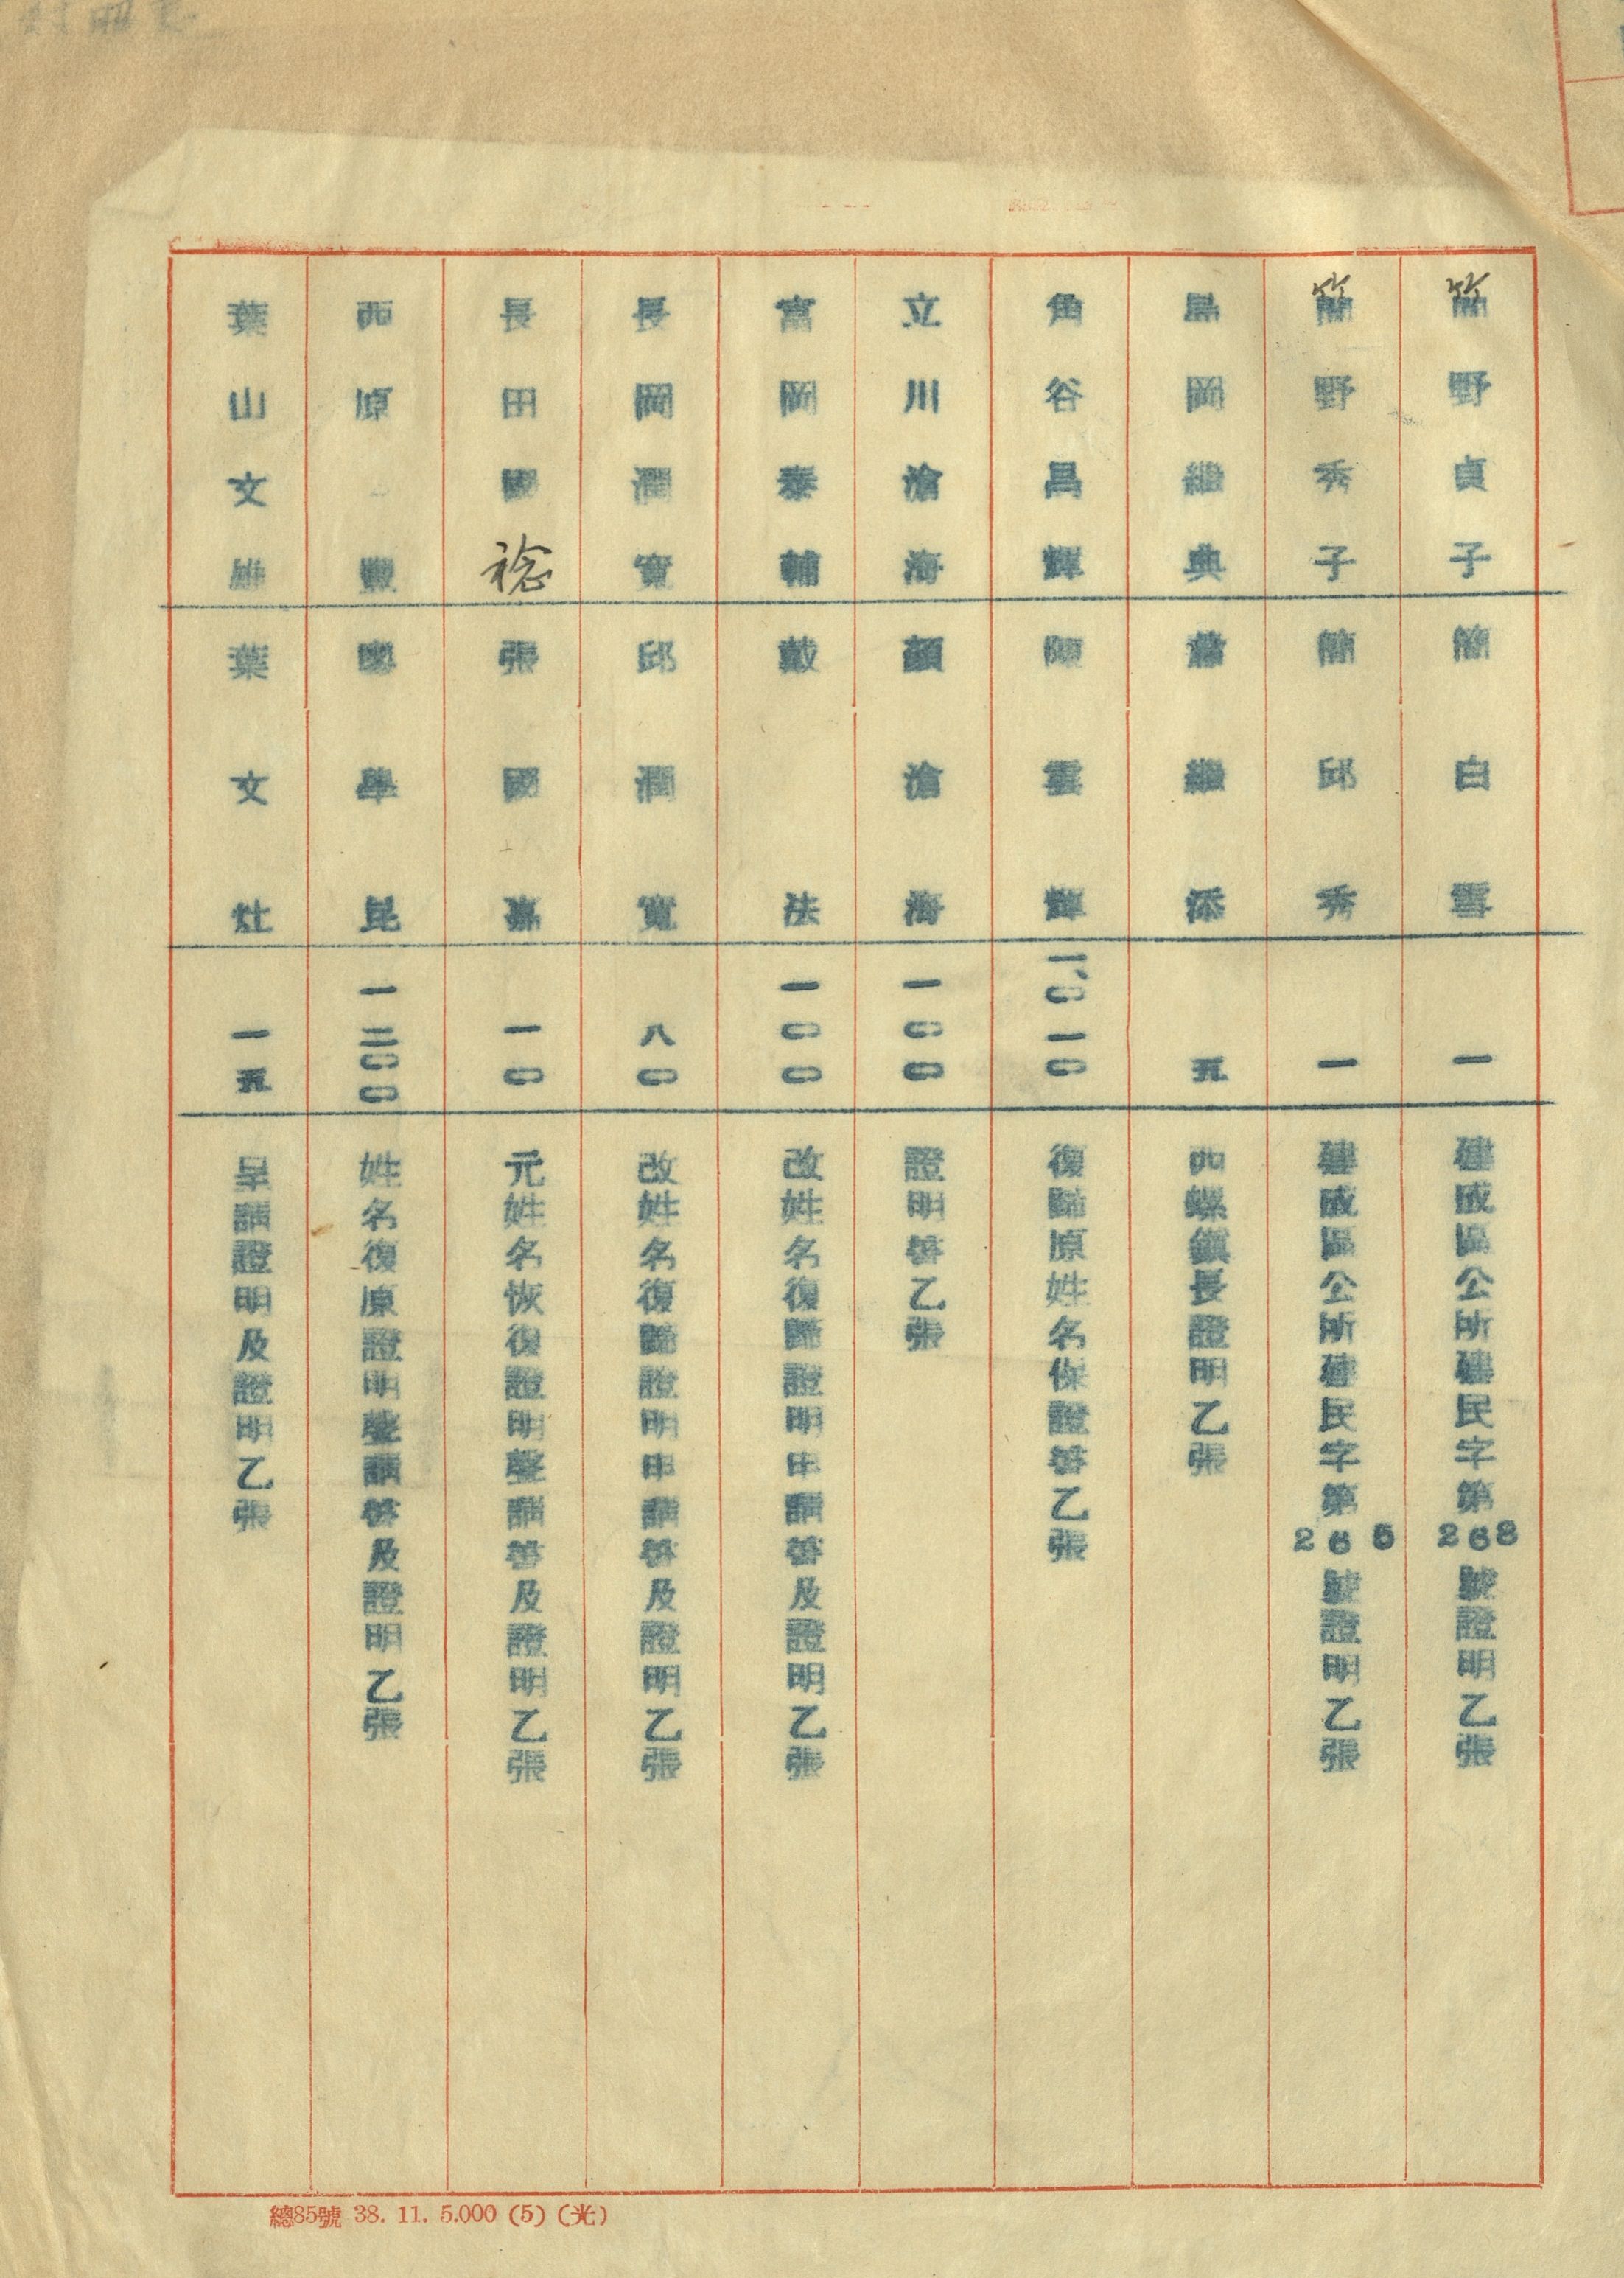 簡野貞子 簡白雪 一 建成區公所建民字第268號證明乙張
簡野秀子 簡邱秀 一 建成區公所建民字第265號證明乙張
岡繼典 繼添 五 西螺鎮長證明乙張
角谷昌輝 陳雲輝 一、〇一〇 復歸原姓名保證書乙張
立川滄海 顏滄海 一〇〇 證明書乙張
富岡泰輔 戴法 一〇〇 改姓名復歸證明申請書及證明乙張
長岡潤寬 邱潤寬 八〇 改姓名復歸證明申請書及證明乙張
長田國稔 張國嘉 一〇 元姓名恢復證明聲請書及證明乙張
西原豐 學昆 一二〇〇 姓名復原證明聲請書及證明乙張
葉山文雄 葉文灶 一五 呈請證明及證明乙張
總85號 38. 11. 5.000 (5) (光)